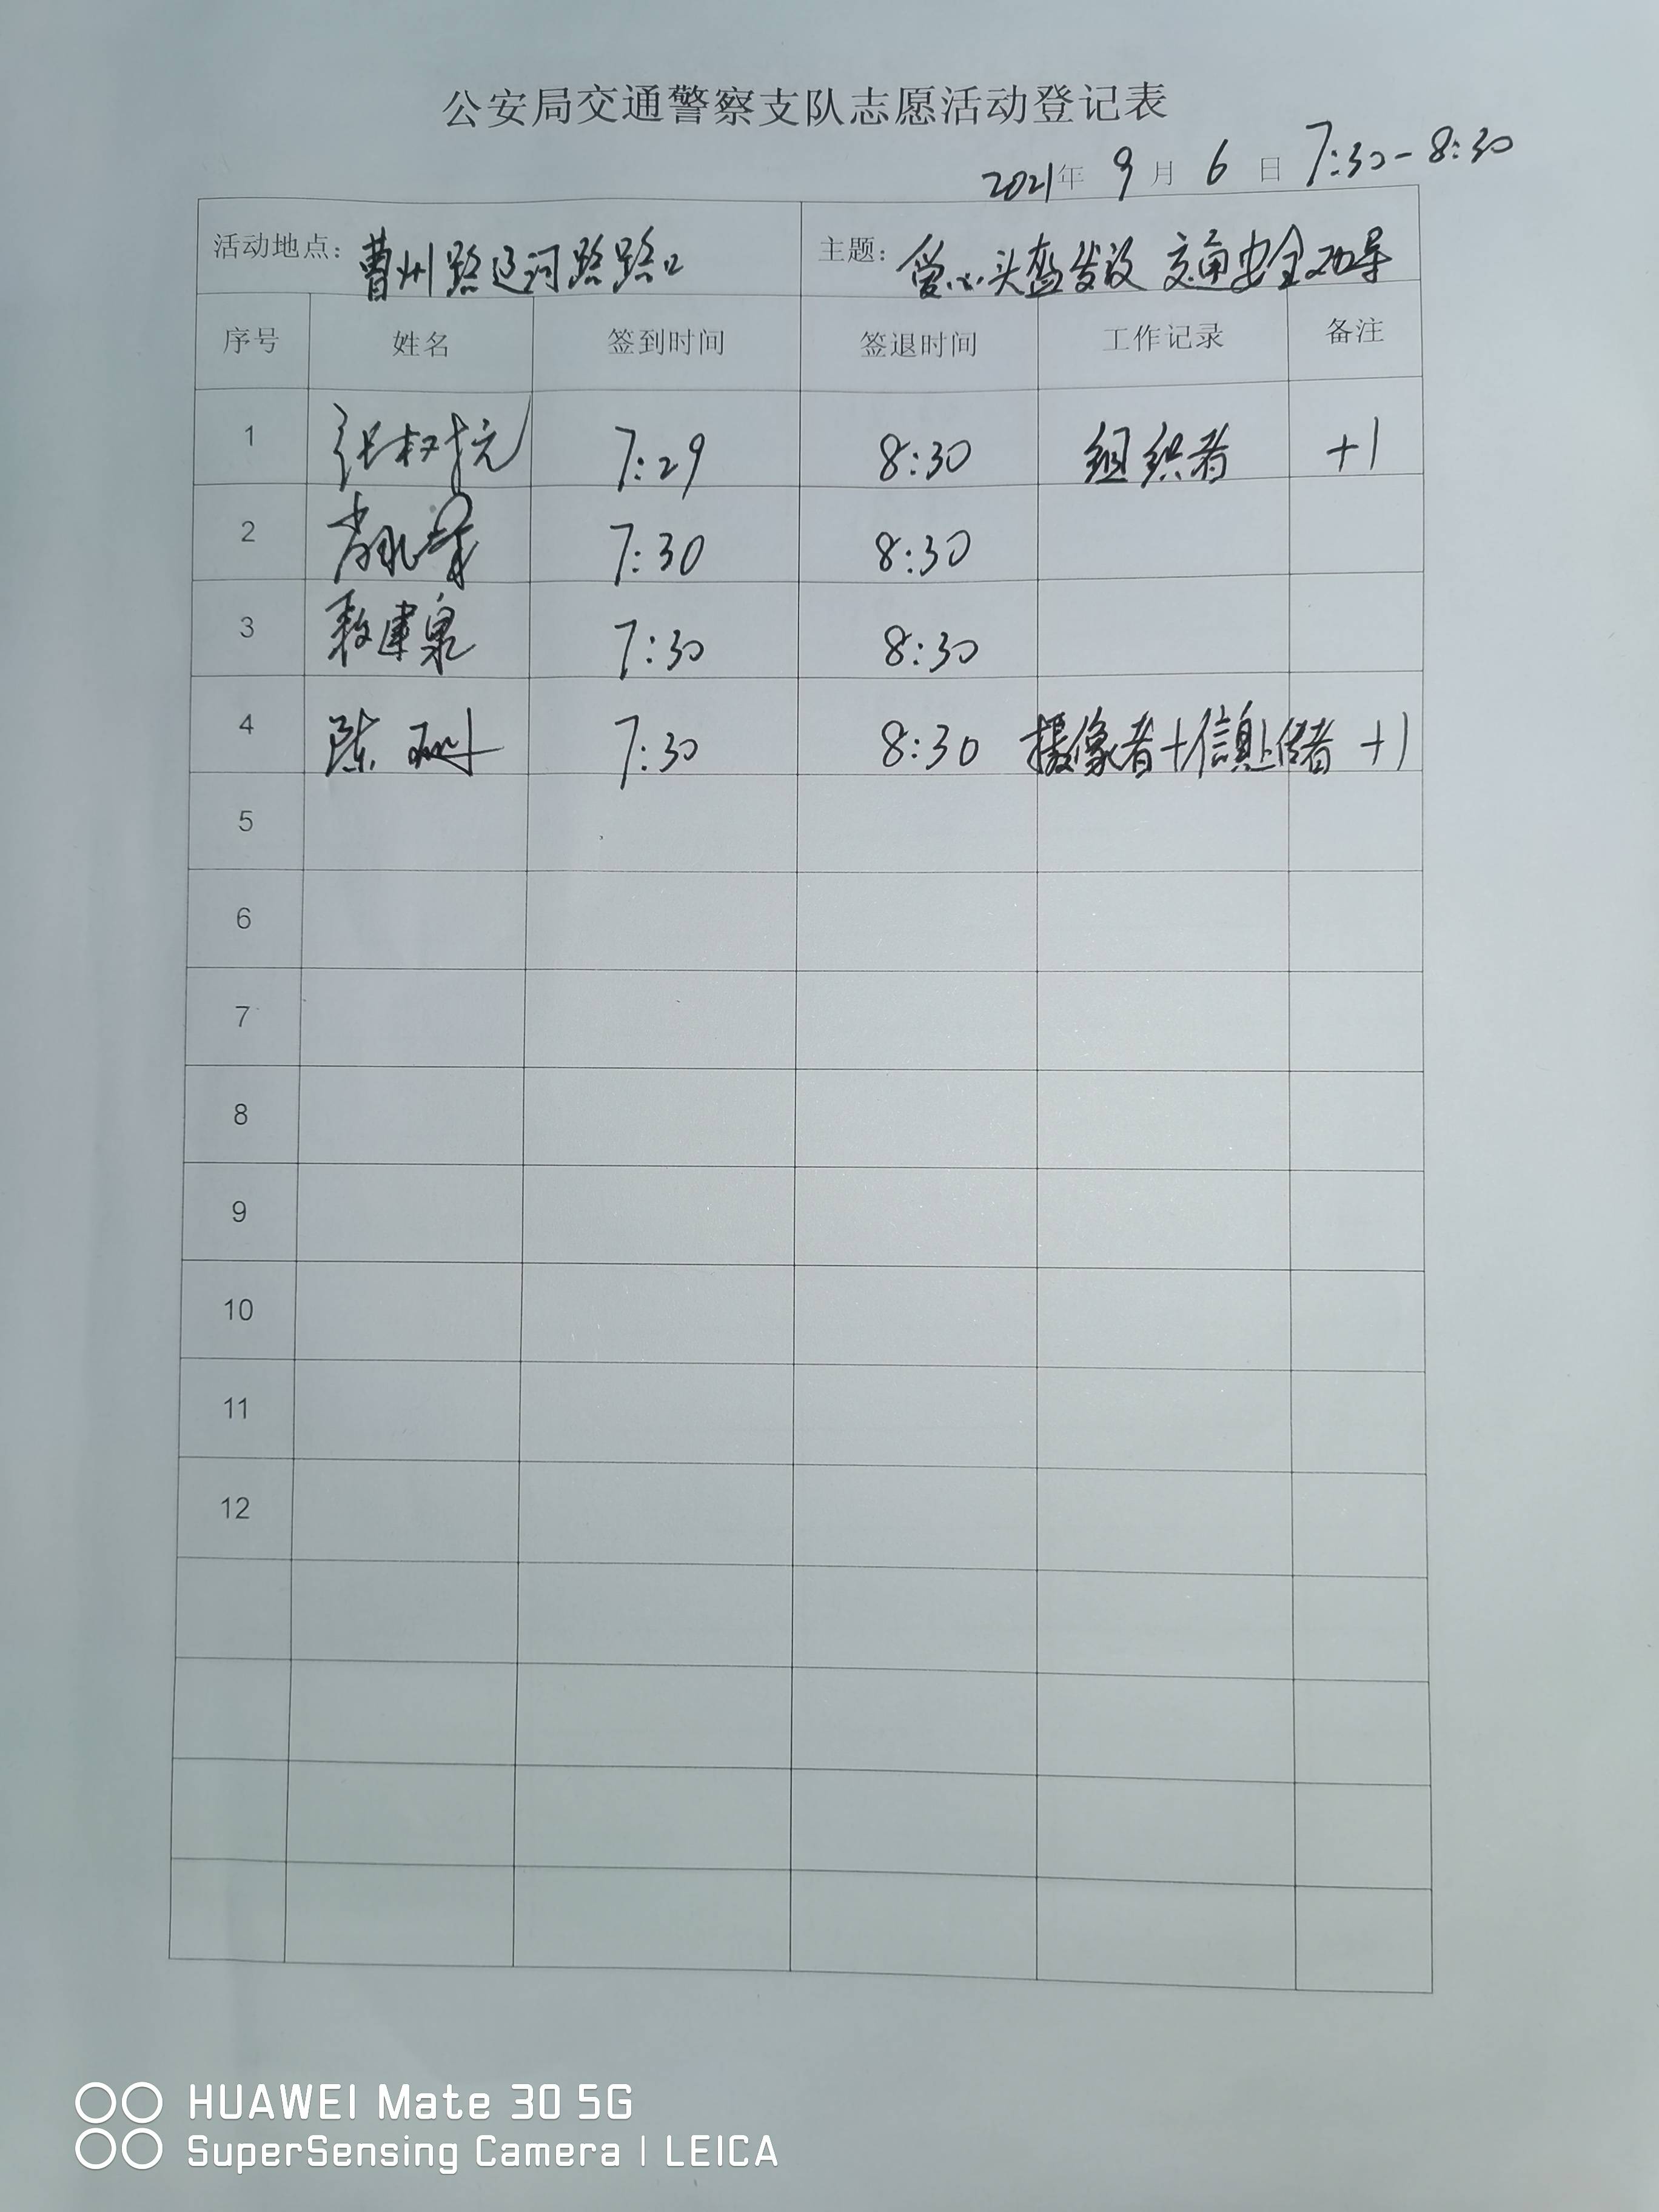 公安局交通警察支队志愿活动登记表
2021年 9月 6日 7:30-8:30
活动地点: 曹州路辽河路路口 主题: 爱心头盔发放 交通安全劝导
序号 姓名 签到时间 签退时间 工作记录 备注
1 张权 7:29 8:30 组织者 +1
2 7:30 8:30
3 敖建泉 7:30 8:30
4 陈 7:30 8:30 摄像者+信息上传者 +1
5
6
7
8
9
10
11
12
HUAWEI Mate 30 5G
SuperSensing Camera | LEICA